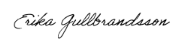 Erika Gullbrandsson